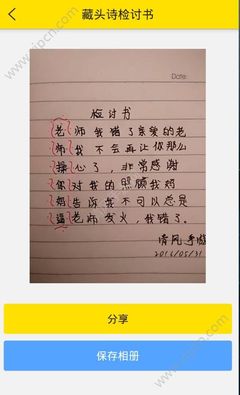 藏头诗检讨书
Date:
检讨书
老师我错了亲爱的老
师我不会再让你那么
操心了，非常感谢
你对我的照顾我妈
妈告诉我不可以总是
逼老师发火，我错了。
清风手游
2016/05/31
分享
保存相册